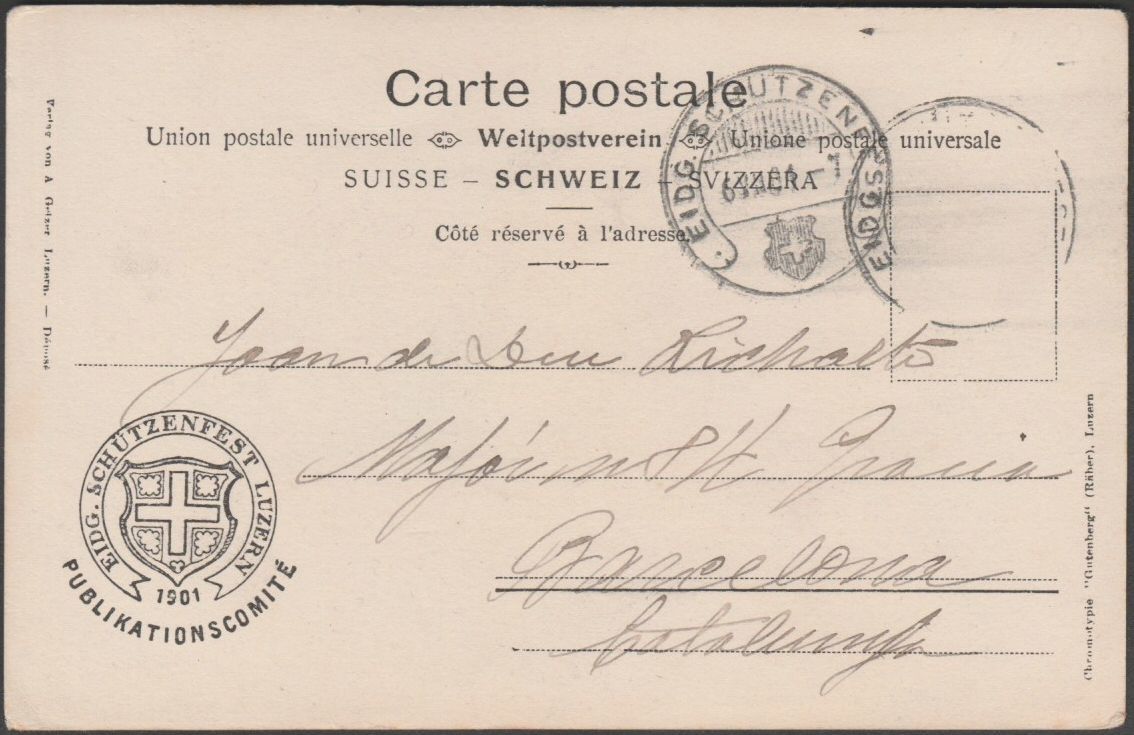 Carte postale
Union postale universelle Weltpostverein Unione postale universale
SUISSE – SCHWEIZ – SVIZZERA
Côté réservé à l'adresse
EIDG. SCHÜTZENFES
EIDGS
Verlag von A Gelzer Luzern. — Déposé
Joan de Deu
Barcelona
Catalunya
EIDG. SCHÜTZENFEST LUZERN
1901
PUBLIKATIONSCOMITÉ
Chromotypie "Gutenberg" (Räber), Luzern